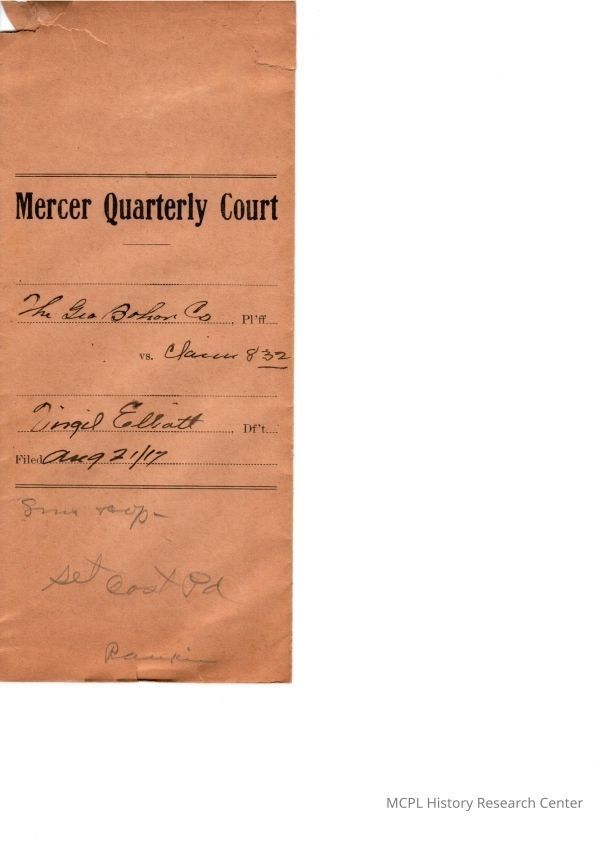 Mercer Quarterly Court
The Geo Bohon Co Pl'ff.
vs. Claim 8 32
Virgil Elliott Df't.
Filed Aug 21/17
Sum
Set Cost Pd
Rankin
MCPL History Research Center